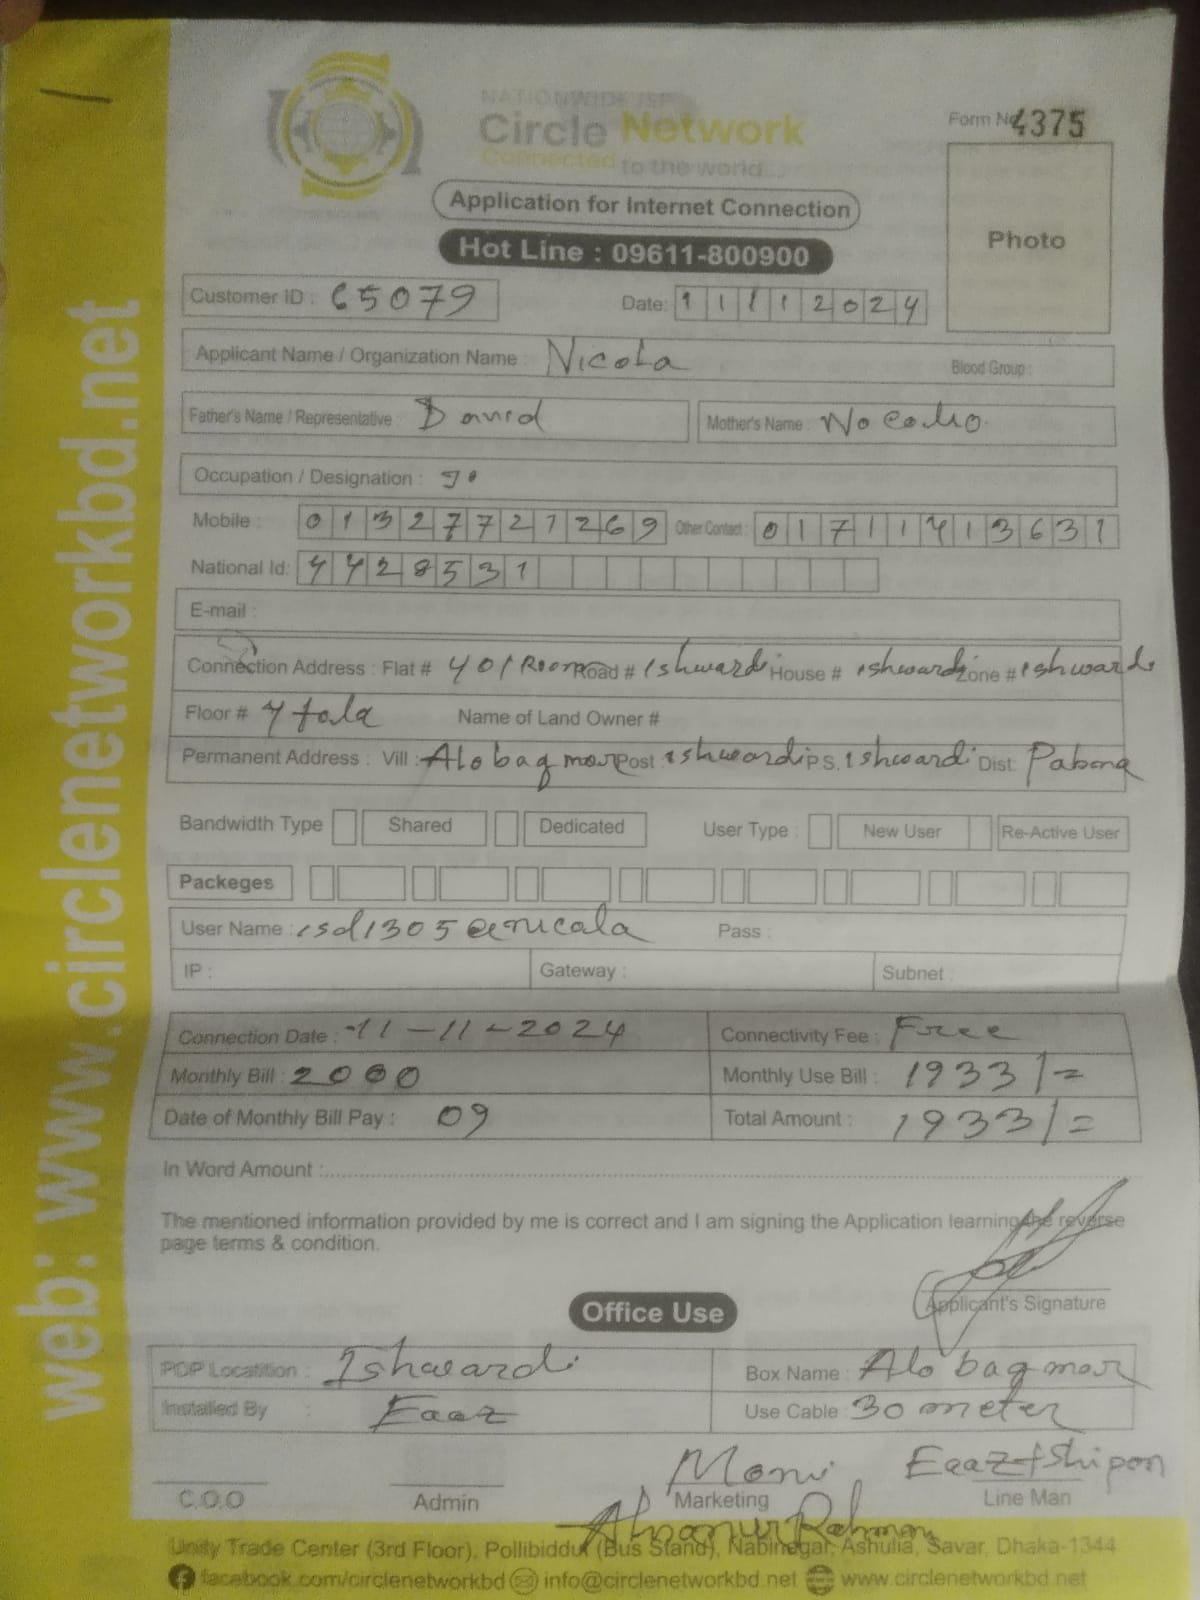 NATIONWIDE ISP
Circle Network
Connected to the world...
Form No 4375
Application for Internet Connection
Photo
Hot Line : 09611-800900
Customer ID : 65079 Date: 11112024
Applicant Name / Organization Name : Nicola Blood Group :
Father's Name / Representative : David Mother's Name :
Occupation / Designation :
Mobile : 01327721269 Other Contact : 01711413631
National Id: 4428531
E-mail :
Connection Address : Flat # 401 Room Road # Ishwardi House # Ishwardi Zone # Ishwardi
Floor # 4 tala Name of Land Owner #
Permanent Address : Vill : Alobag mor Post Ishwardi P.S. Ishwardi Dist: Pabna
Bandwidth Type Shared Dedicated User Type : New User Re-Active User
Packeges
User Name : isd1305@nicala Pass :
IP : Gateway : Subnet :
Connection Date : 11-11-2024 Connectivity Fee : Free
Monthly Bill : 2000 Monthly Use Bill : 1933/=
Date of Monthly Bill Pay : 09 Total Amount : 1933/=
In Word Amount :
The mentioned information provided by me is correct and I am signing the Application learning the reverse
page terms & condition.
Applicant's Signature
Office Use
POP Locatition : Ishwardi Box Name : Alo bag mor
Installed By : Eaaz Use Cable : 30 meter
Moni Eaaz+Shipon
C.O.O Admin Marketing Line Man
Rahman
Unity Trade Center (3rd Floor), Pollibiddut (Bus Stand), Nabinagar, Ashulia, Savar, Dhaka-1344
facebook.com/circlenetworkbd info@circlenetworkbd.net www.circlenetworkbd.net
web: www.circlenetworkbd.net